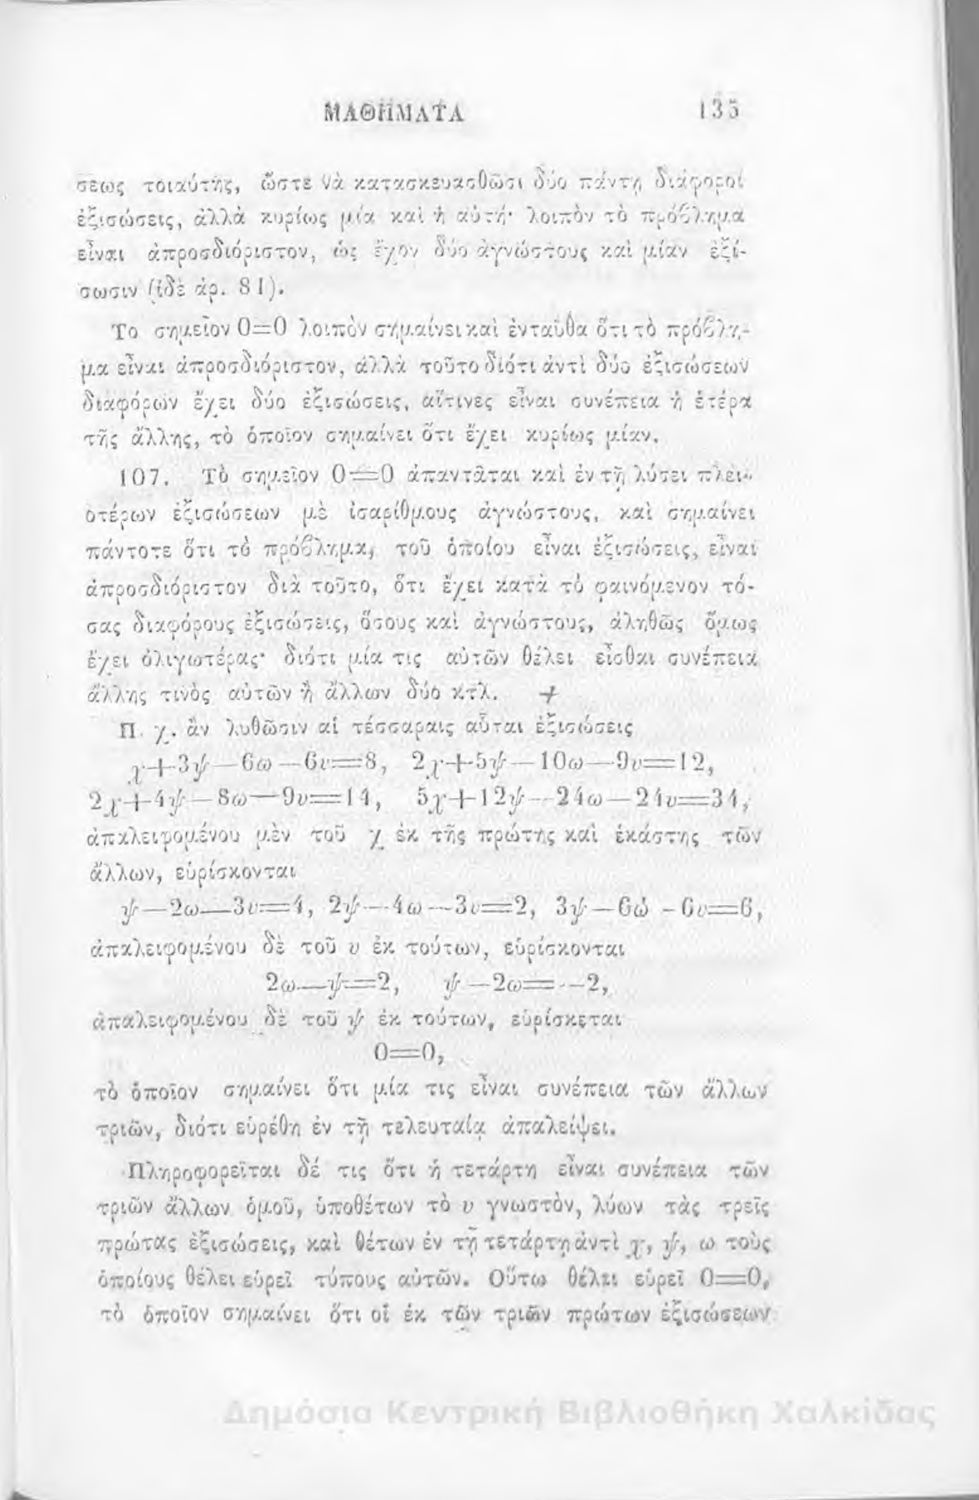 ΜΑΘΗΜΑΤΑ 135
σεως τοιαύτης, ὥστε νὰ κατασκευασθῶσι δύο πάντη διάφοροι
ἐξισώσεις, ἀλλὰ κυρίως μία καὶ ἡ αὐτή· λοιπὸν τὸ πρόβλημα
εἶναι ἀπροσδιόριστον, ὡς ἔχον δύο ἀγνώστους καὶ μίαν ἐξί-
σωσιν (ἰδὲ ἀρ. 81).
Το σημεῖον 0=0 λοιπὸν σημαίνει καὶ ἐνταῦθα ὅτι τὸ πρόβλη-
μα εἶναι ἀπροσδιόριστον, ἀλλὰ τοῦτο διότι ἀντὶ δύο ἐξισώσεων
διαφόρων ἔχει δύο ἐξισώσεις, αἵτινες εἶναι συνέπεια ἡ ἑτέρα
τῆς ἄλλης, τὸ ὁποῖον σημαίνει ὅτι ἔχει κυρίως μίαν.
107. Τὸ σημεῖον 0=0 ἀπαντᾶται καὶ ἐν τῇ λύσει πλει-
οτέρων ἐξισώσεων μὲ ἰσαρίθμους ἀγνώστους, καὶ σημαίνει
πάντοτε ὅτι τὸ πρόβλημα, τοῦ ὁποίου εἶναι ἐξισώσεις, εἶναι
ἀπροσδιόριστον διὰ τοῦτο, ὅτι ἔχει κατὰ τὸ φαινόμενον τό-
σας διαφόρους ἐξισώσεις, ὅσους καὶ ἀγνώστους, ἀληθῶς ὅμως
ἔχει ὀλιγωτέρας· διότι μία τις αὐτῶν θέλει εἶσθαι συνέπεια
ἄλλης τινὸς αὐτῶν ἢ ἄλλων δύο κτλ.
Π. χ. ἂν λυθῶσιν αἱ τέσσαραις αὗται ἐξισώσεις
χ+3ψ—6ω—6υ=8, 2χ+5ψ—10ω—9υ=12,
2χ+4ψ—8ω—9υ=14, 5χ+12ψ—24ω—24υ=34,
ἀπαλειφομένου μὲν τοῦ χ ἐκ τῆς πρώτης καὶ ἑκάστης τῶν
ἄλλων, εὑρίσκονται
ψ—2ω—3υ=4, 2ψ—4ω—3υ=2, 3ψ—6ω—6υ=6,
ἀπαλειφομένου δὲ τοῦ υ ἐκ τούτων, εὑρίσκονται
2ω—ψ=2, ψ—2ω=—2,
ἀπαλειφομένου δὲ τοῦ ψ ἐκ τούτων, εὑρίσκεται
0=0,
τὸ ὁποῖον σημαίνει ὅτι μία τις εἶναι συνέπεια τῶν ἄλλων
τριῶν, διότι εὑρέθη ἐν τῇ τελευταίᾳ ἀπαλείψει.
Πληροφορεῖται δέ τις ὅτι ἡ τετάρτη εἶναι συνέπεια τῶν
τριῶν ἄλλων ὁμοῦ, ὑποθέτων τὸ υ γνωστὸν, λύων τὰς τρεῖς
πρώτας ἐξισώσεις, καὶ θέτων ἐν τῇ τετάρτῃ ἀντὶ χ, ψ, ω τοὺς
ὁποίους θέλει εὑρεῖ τύπους αὐτῶν. Οὕτω θέλει εὑρεῖ 0=0,
τὸ ὁποῖον σημαίνει ὅτι οἱ ἐκ τῶν τριῶν πρώτων ἐξισώσεων
Δημόσια Κεντρική Βιβλιοθήκη Χαλκίδας